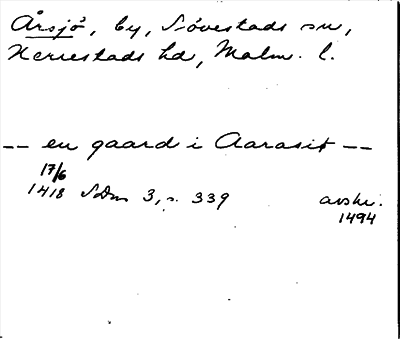 Årsjö, by, Sövestads sn,
Herrestads hd, Malm. l.
-- en gaard i Aarasit --
17/6
1418 SDns 3, s. 339 avskr.
1494